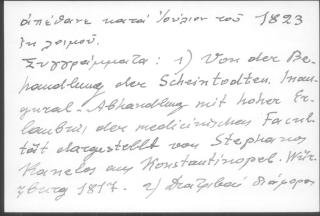 ἀπέθανε κατά Ἰούνιον τοῦ 1823
ἐκ λοιμοῦ.
Συγγράμματα: 1) Von der Be-
handlung der Scheintodten. Inau-
gural-Abhandlung mit hoher Er-
laubnis der medicinischen Facul-
tät dargestellt von Stephanos
Kanelos aus Konstantinopel. Wür-
zburg 1817. 2) Διατριβαί διάφοροι